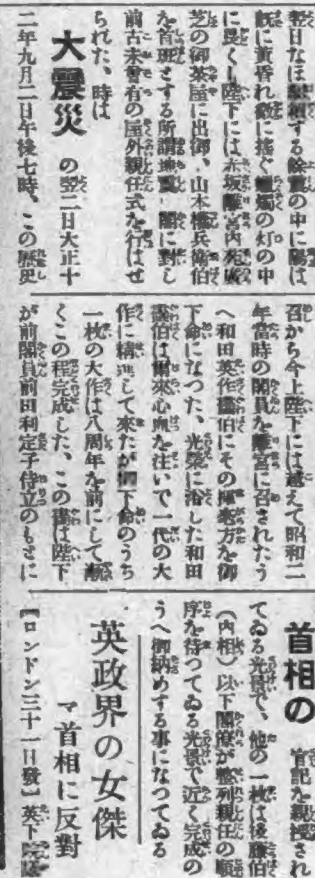 翌日なほ頻頻する餘震の中に陽は
既に黄昏れ微に搖ぐ蠟燭の灯の中
に畏くも陛下には赤坂離宮内苑廣
芝の御茶屋に出御、山本權兵衛伯
を首班とする所謂地震内閣に對し
前古未曾有の屋外親任式を行はせ
られた、時は
大震災
の翌二日大正十
二年九月二日午後七時、この歴史
召から今上陛下には越えて昭和二
年當時の閣員を離宮に召されたう
へ和田英作畫伯にその揮毫方を御
下命になつた、光榮に浴した和田
畫伯は爾來心血を注いで一代の大
作に精進して來たが御下命のうち
一枚の大作は八周年を前にして漸
くこの程完成した、この畫は陛下
が前閣員前田利定子侍立のもとに
首相の
官記を親授され
てゐる光景で、他の一枚は後藤伯
(内相)以下閣僚が整列親任の順
序を待つてゐる光景で近く完成の
うへ御納めする事になつてゐる
英政界の女傑
マ首相に反對
【ロンドン三十一日發】英下院議